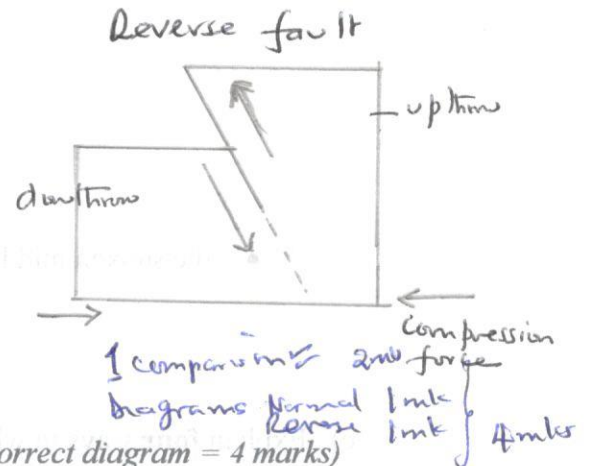 Reverse fault
upthrow
downthrow
compression
force
1 comparison 2mks
Diagrams Normal 1mk
Reverse 1mk
4mks
orrect diagram = 4 marks)